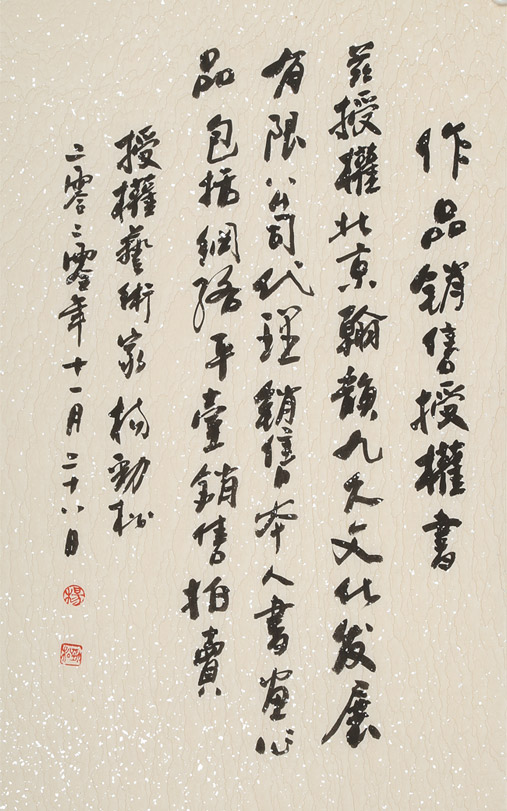 作品銷售授權書
茲授權北京翰韻九天文化发展
有限公司代理銷售本人書畫作
品包括網絡平臺銷售拍賣
授權藝術家楊勁松
二零二零年十一月二十八日
楊